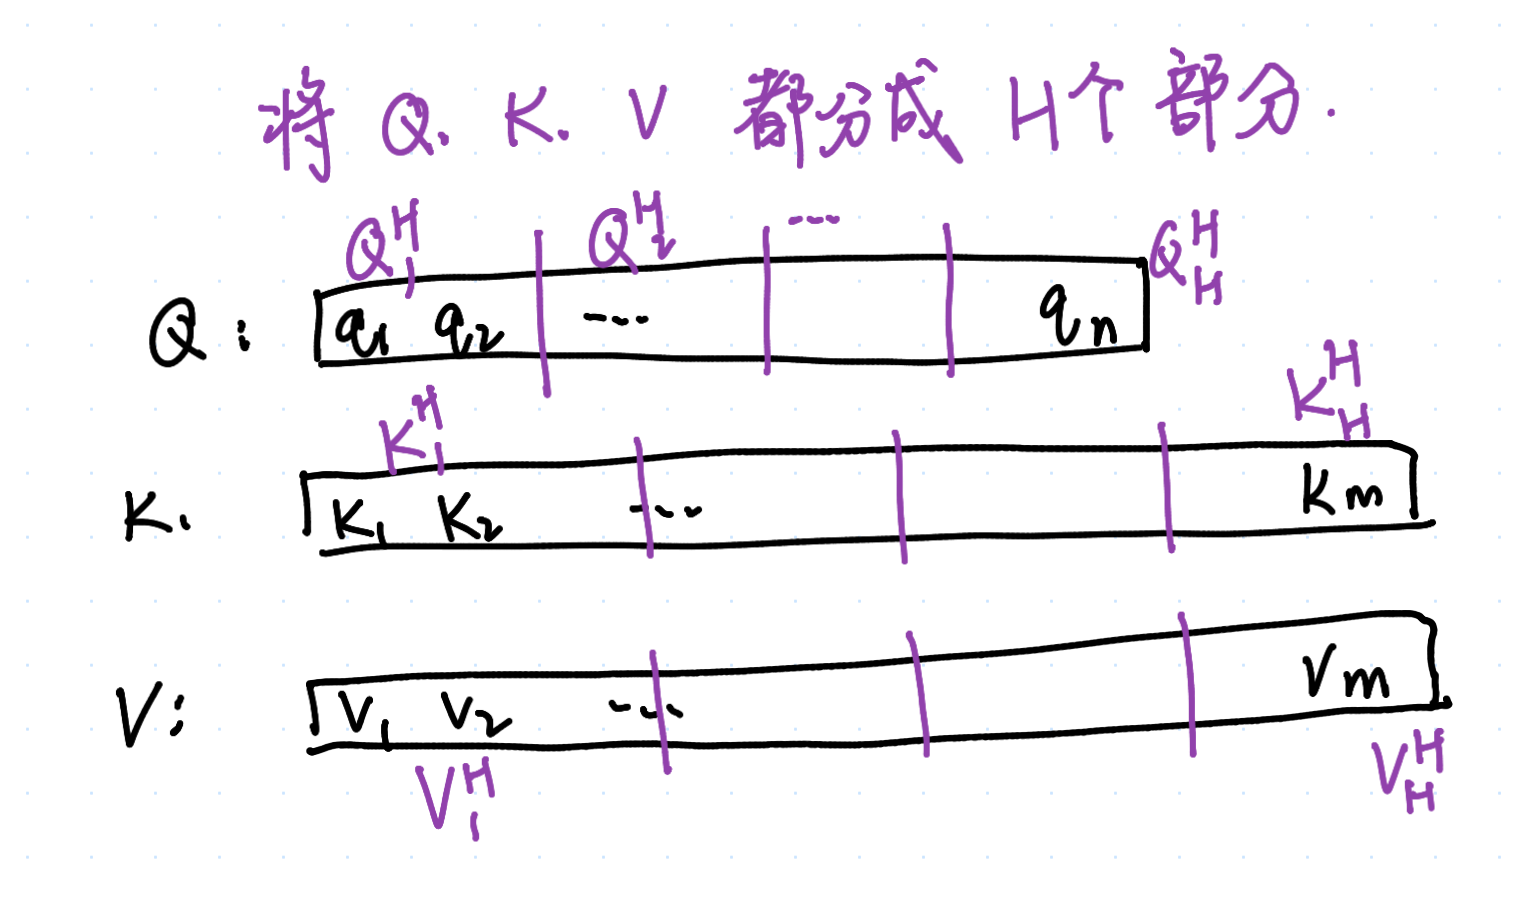 将 Q. K. V 都分成 H个部分.
Q₁ᴴ Q₂ᴴ --- Q_Hᴴ
Q: q₁ q₂ --- qₙ
K₁ᴴ K_Hᴴ
K. K₁ K₂ --- Kₘ
V: V₁ V₂ --- Vₘ
V₁ᴴ V_Hᴴ